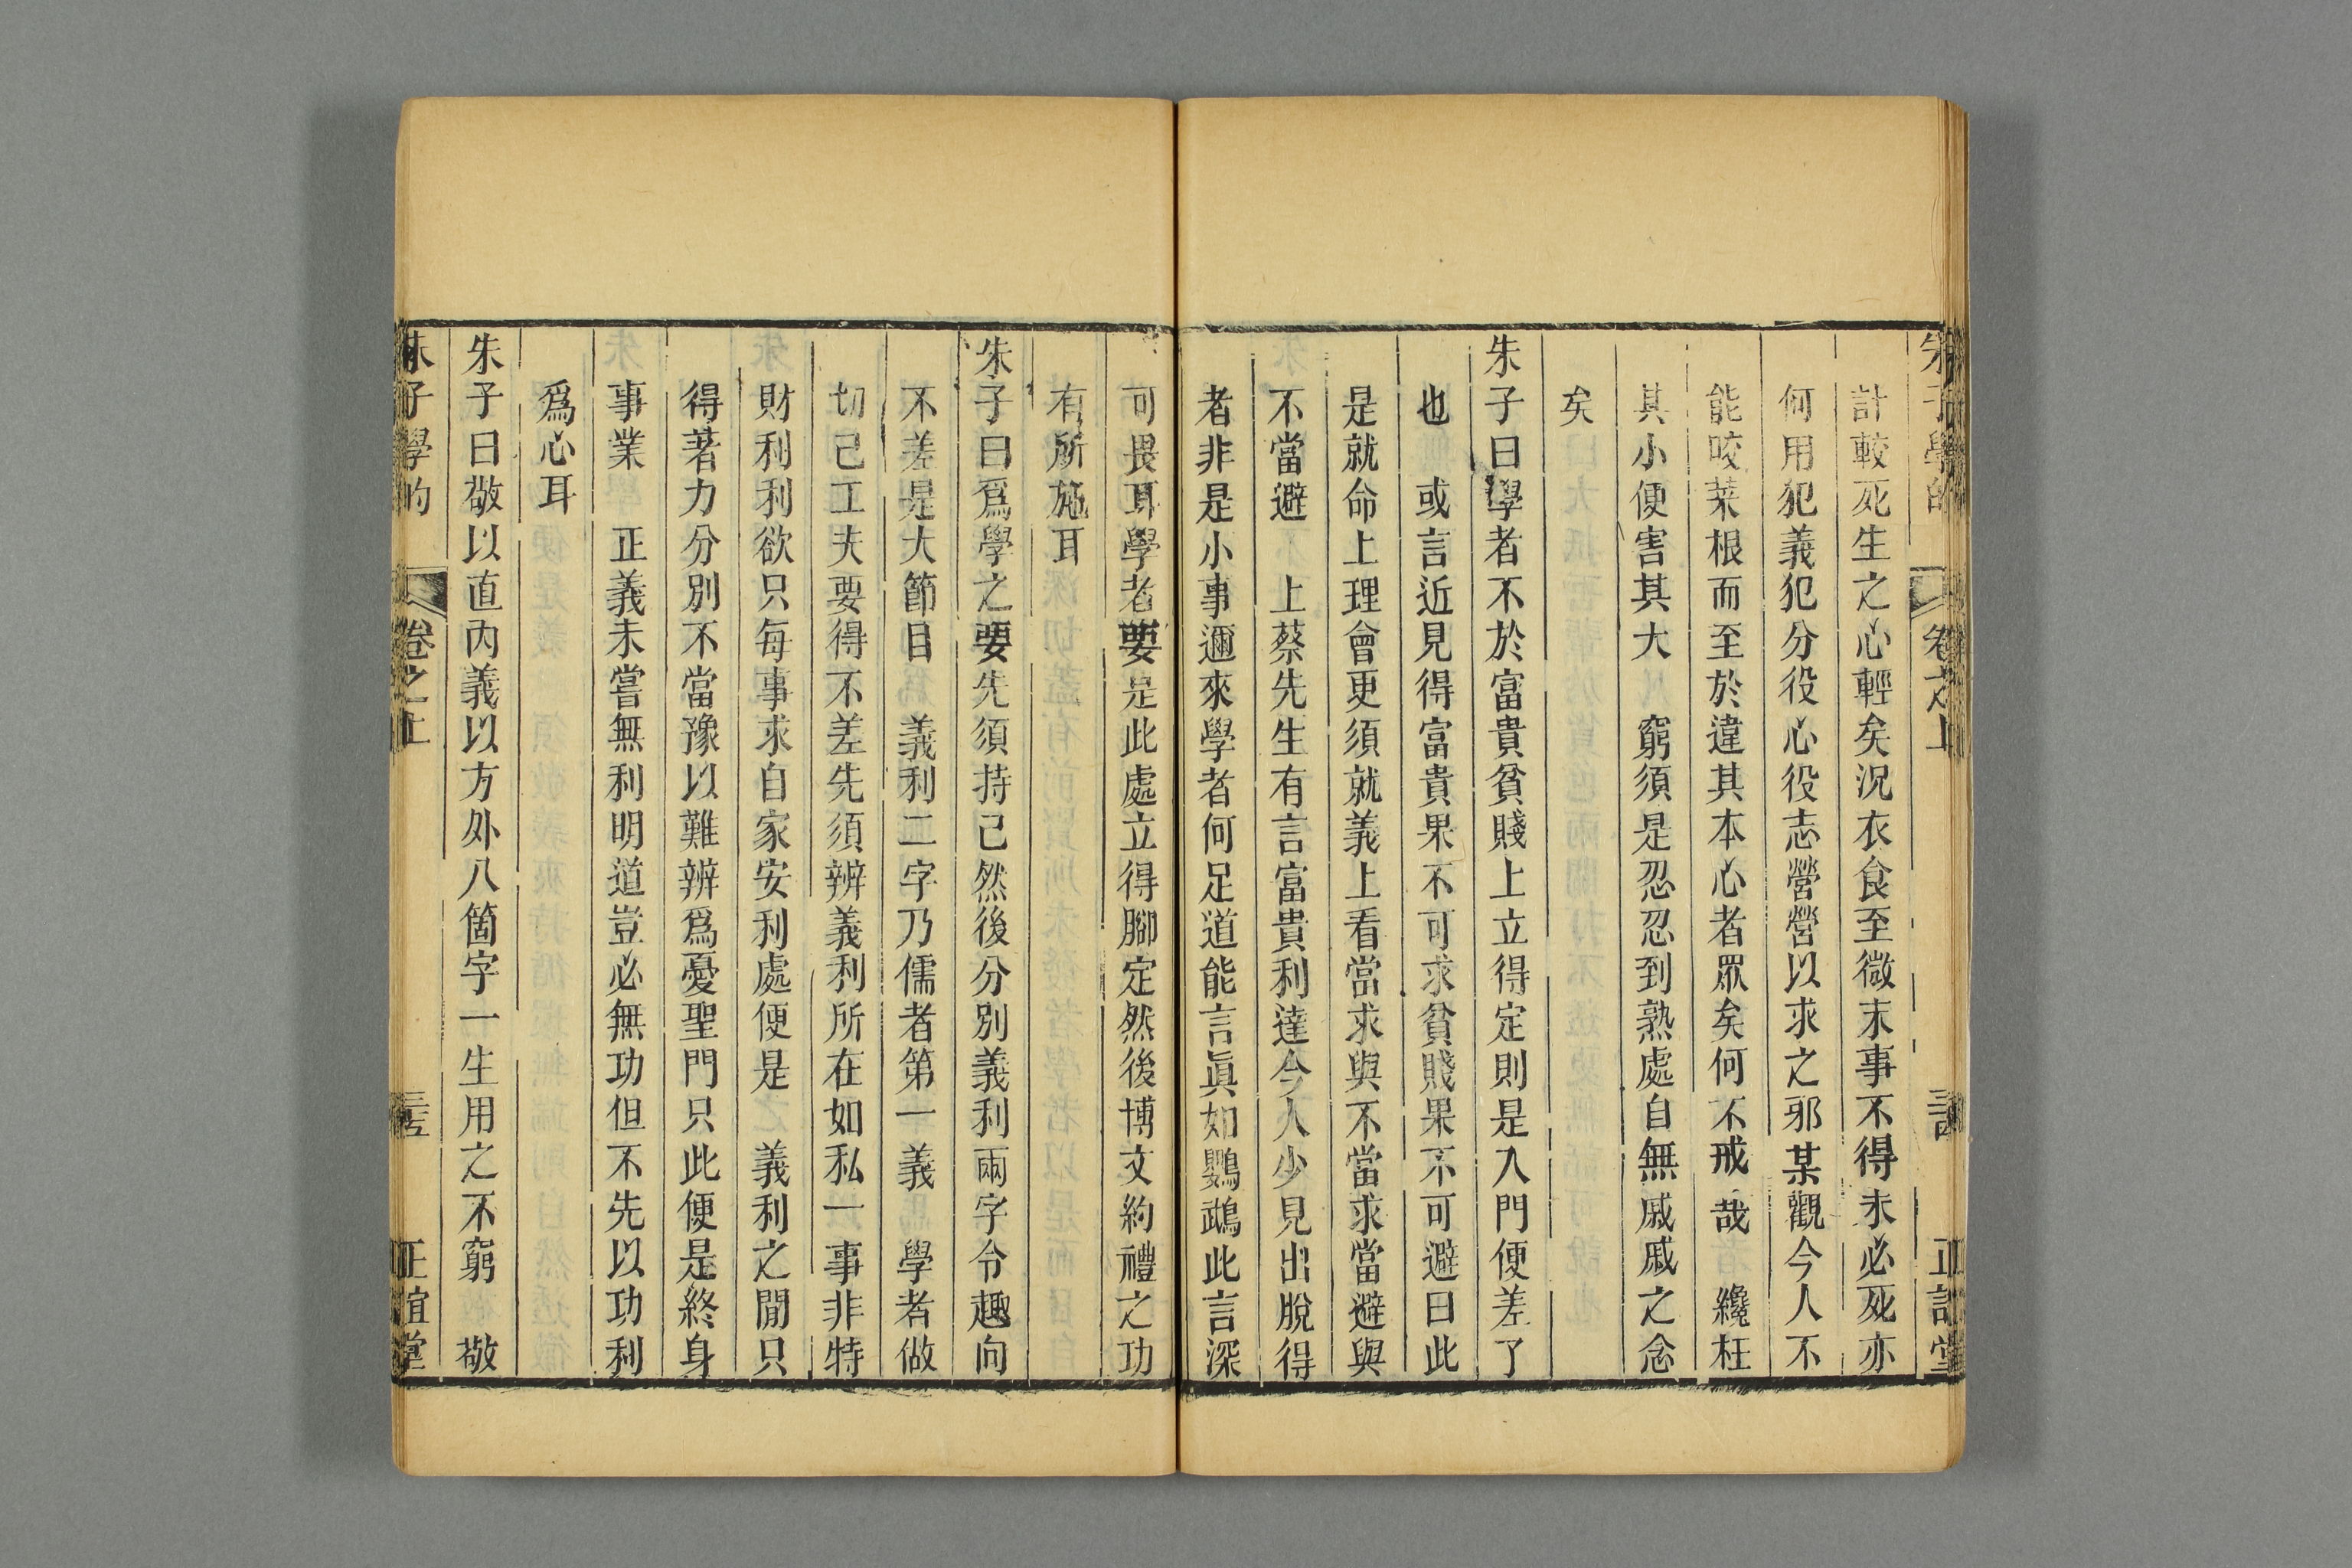 朱子學的 卷之上 正誼堂
計較死生之心輕矣況衣食至微末事不得未必死亦
何用犯義犯分役心役志營營以求之邪某觀今人不
能咬菜根而至於違其本心者眾矣何不戒哉 纔枉
其小便害其大 窮須是忍忍到熟處自無戚戚之念
矣
朱子曰學者不於富貴貧賤上立得定則是入門便差了
也 或言近見得富貴果不可求貧賤果不可避曰此
是就命上理會更須就義上看當求與不當求當避與
不當避 上蔡先生有言富貴利達今人少見出脫得
者非是小事邇來學者何足道能言眞如鸚鵡此言深
可畏耳學者要是此處立得腳定然後博文約禮之功
有所施耳
朱子曰爲學之要先須持己然後分別義利兩字令趣向
不差是大節目 義利二字乃儒者第一義 學者做
切己工夫要得不差先須辨義利所在如私一事非特
財利利欲只每事求自家安利處便是 義利之閒只
得著力分別不當豫以難辨爲憂聖門只此便是終身
事業 正義未嘗無利明道豈必無功但不先以功利
爲心耳
朱子曰敬以直內義以方外八箇字一生用之不窮 敬
朱子學的 卷之上 正誼堂